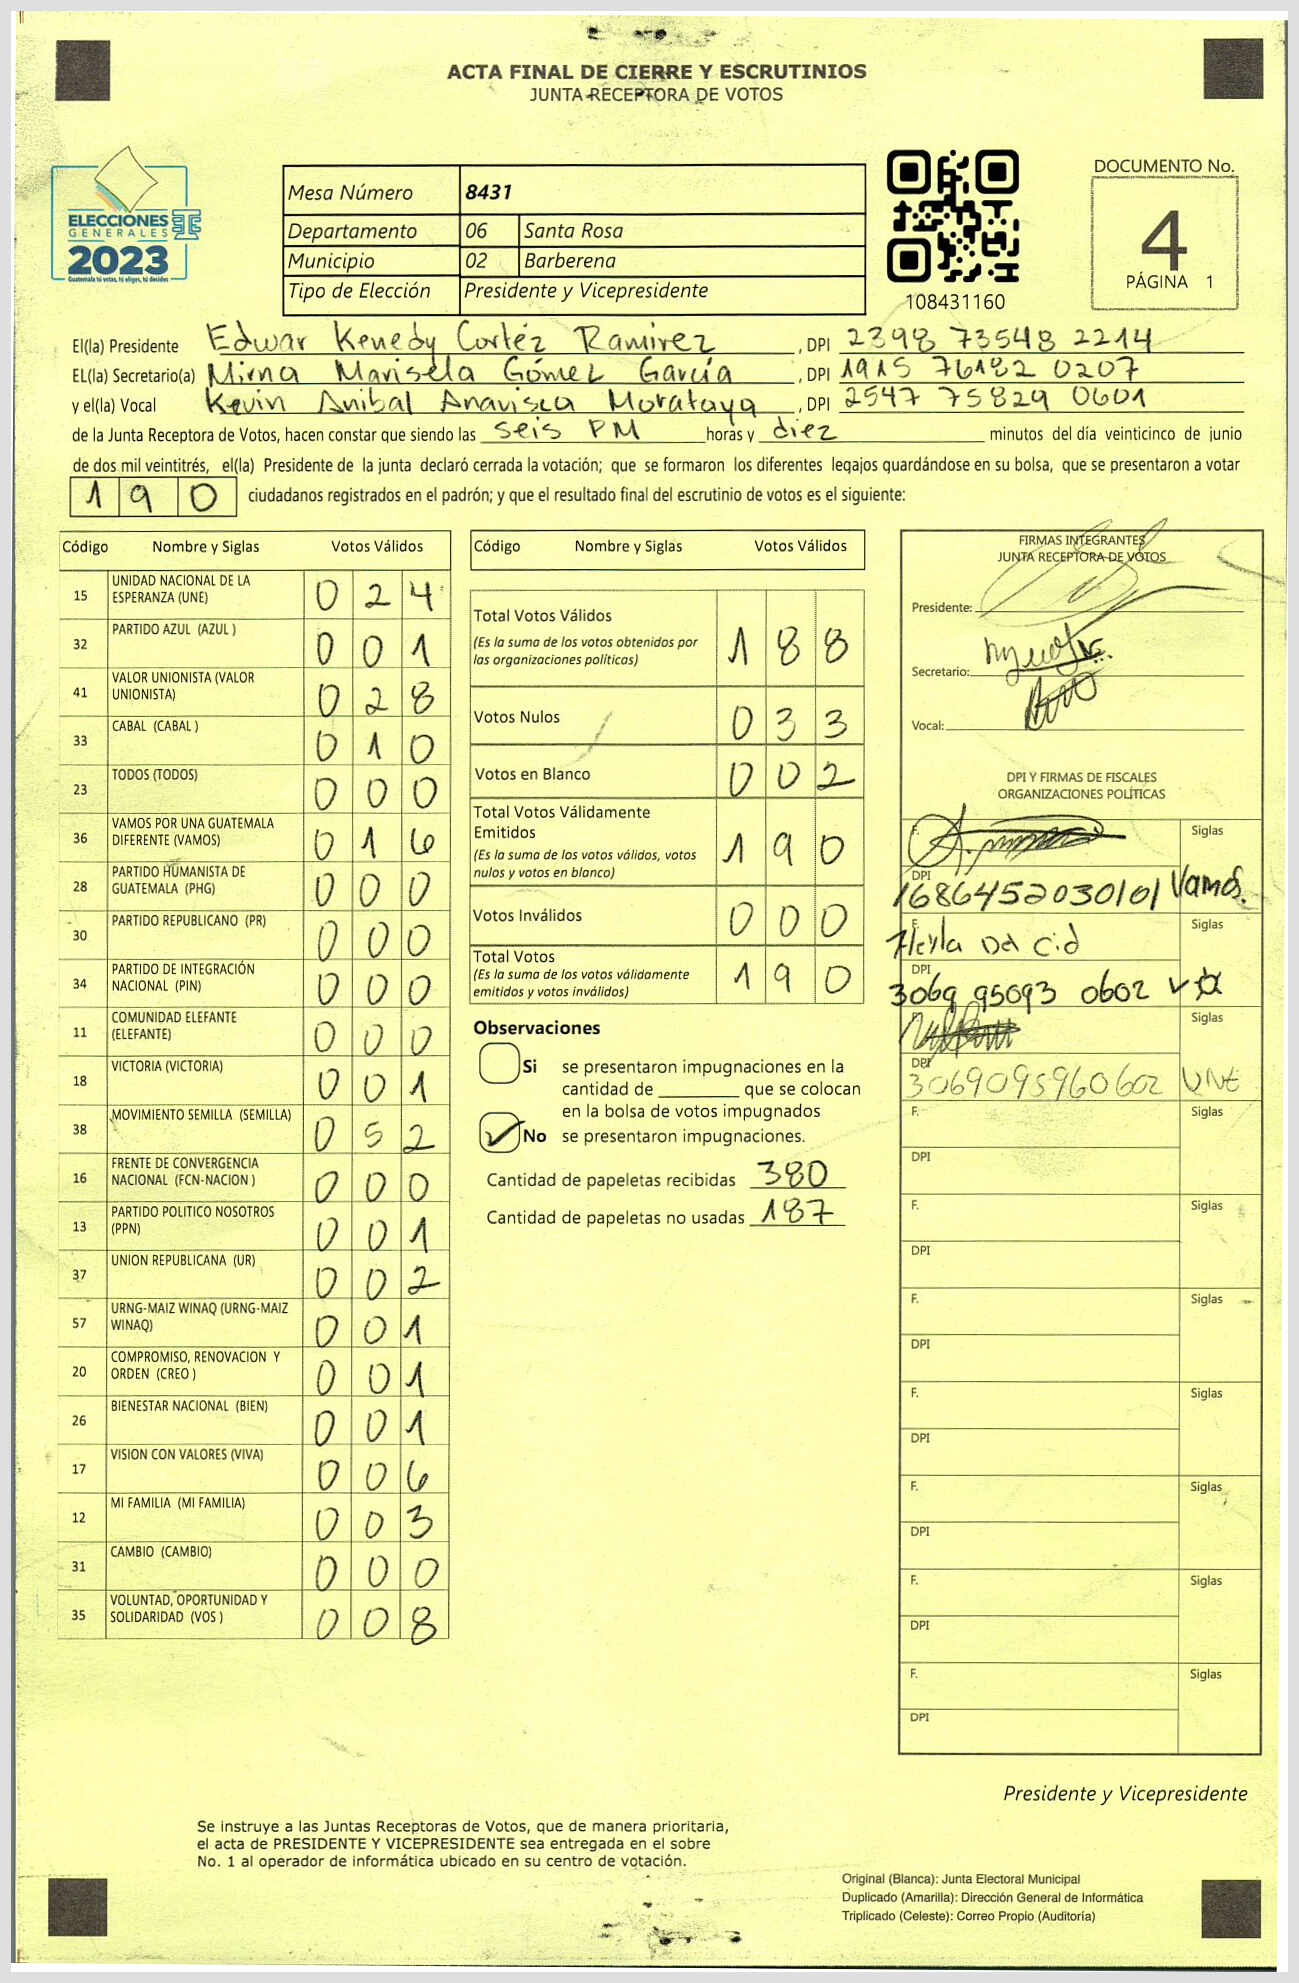 ACTA FINAL DE CIERRE Y ESCRUTINIOS
JUNTA RECEPTORA DE VOTOS
ELECCIONES
GENERALES
2023
Guatemala tú votas, tú eliges, tú decides
Mesa Número 8431
Departamento 06 Santa Rosa
Municipio 02 Barberena
Tipo de Elección Presidente y Vicepresidente
108431160
DOCUMENTO No.
4
PÁGINA 1
El(la) Presidente Edwar Kenedy Cortéz Ramirez, DPI 2398 73548 2214
EL(la) Secretario(a) Mirna Marisela Gómez García, DPI 1915 76182 0207
y el(la) Vocal Kevin Anibal Anavisca Morataya, DPI 2547 75829 0601
de la Junta Receptora de Votos, hacen constar que siendo las seis PM horas y diez minutos del día veinticinco de junio
de dos mil veintitrés, el(la) Presidente de la junta declaró cerrada la votación; que se formaron los diferentes legajos guardándose en su bolsa, que se presentaron a votar
190 ciudadanos registrados en el padrón; y que el resultado final del escrutinio de votos es el siguiente:
Código Nombre y Siglas Votos Válidos
15 UNIDAD NACIONAL DE LA ESPERANZA (UNE) 024
32 PARTIDO AZUL (AZUL ) 001
41 VALOR UNIONISTA (VALOR UNIONISTA) 028
33 CABAL (CABAL ) 010
23 TODOS (TODOS) 000
36 VAMOS POR UNA GUATEMALA DIFERENTE (VAMOS) 016
28 PARTIDO HUMANISTA DE GUATEMALA (PHG) 000
30 PARTIDO REPUBLICANO (PR) 000
34 PARTIDO DE INTEGRACIÓN NACIONAL (PIN) 000
11 COMUNIDAD ELEFANTE (ELEFANTE) 000
18 VICTORIA (VICTORIA) 001
38 MOVIMIENTO SEMILLA (SEMILLA) 052
16 FRENTE DE CONVERGENCIA NACIONAL (FCN-NACION ) 000
13 PARTIDO POLITICO NOSOTROS (PPN) 001
37 UNION REPUBLICANA (UR) 002
57 URNG-MAIZ WINAQ (URNG-MAIZ WINAQ) 001
20 COMPROMISO, RENOVACION Y ORDEN (CREO ) 001
26 BIENESTAR NACIONAL (BIEN) 001
17 VISION CON VALORES (VIVA) 006
12 MI FAMILIA (MI FAMILIA) 003
31 CAMBIO (CAMBIO) 000
35 VOLUNTAD, OPORTUNIDAD Y SOLIDARIDAD (VOS ) 008
Código Nombre y Siglas Votos Válidos
Total Votos Válidos 188
(Es la suma de los votos obtenidos por
las organizaciones políticas)
Votos Nulos 033
Votos en Blanco 002
Total Votos Válidamente
Emitidos 190
(Es la suma de los votos válidos, votos
nulos y votos en blanco)
Votos Inválidos 000
Total Votos 190
(Es la suma de los votos válidamente
emitidos y votos inválidos)
Observaciones
Si se presentaron impugnaciones en la
cantidad de ________ que se colocan
en la bolsa de votos impugnados
No se presentaron impugnaciones.
Cantidad de papeletas recibidas 380
Cantidad de papeletas no usadas 187
FIRMAS INTEGRANTES
JUNTA RECEPTORA DE VOTOS
Presidente:
Secretario:
Vocal:
DPI Y FIRMAS DE FISCALES
ORGANIZACIONES POLÍTICAS
F. Siglas
DPI
1686452030101 Vamos.
F. Siglas
DPI
3069 95093 0602
Siglas
DPI
3069095960602 UNE
F. Siglas
DPI
F. Siglas
DPI
F. Siglas
DPI
F. Siglas
DPI
F. Siglas
DPI
F. Siglas
DPI
F. Siglas
DPI
Presidente y Vicepresidente
Se instruye a las Juntas Receptoras de Votos, que de manera prioritaria,
el acta de PRESIDENTE Y VICEPRESIDENTE sea entregada en el sobre
No. 1 al operador de informática ubicado en su centro de votación.
Original (Blanca): Junta Electoral Municipal
Duplicado (Amarilla): Dirección General de Informática
Triplicado (Celeste): Correo Propio (Auditoría)